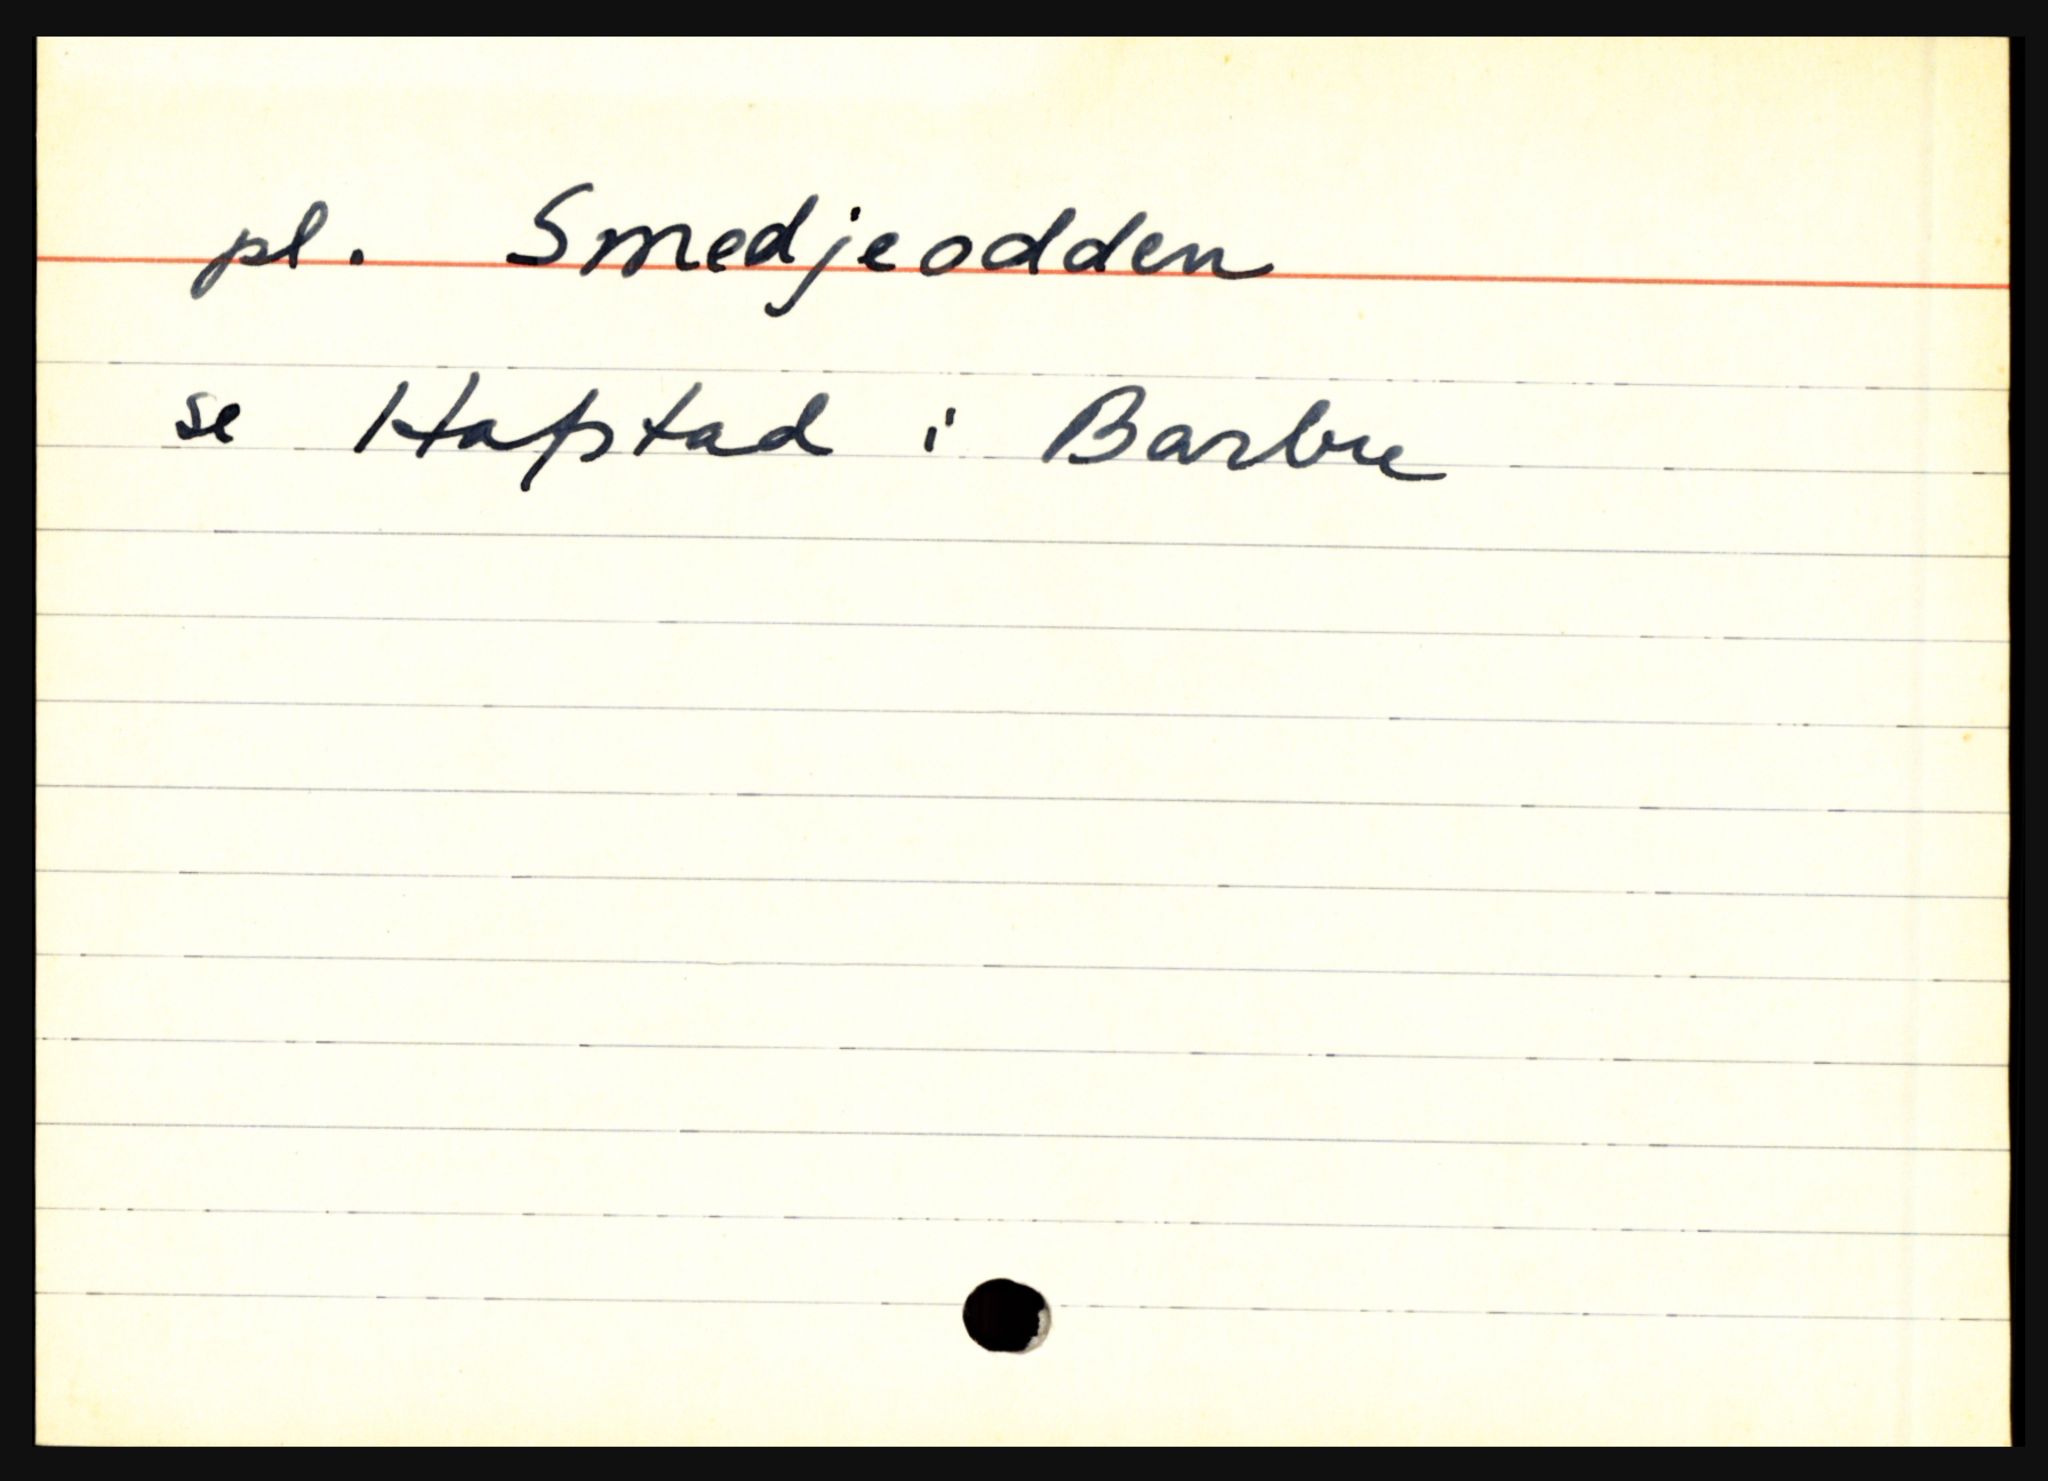 pl. Smedjeodden
se Hafstad i Barbu